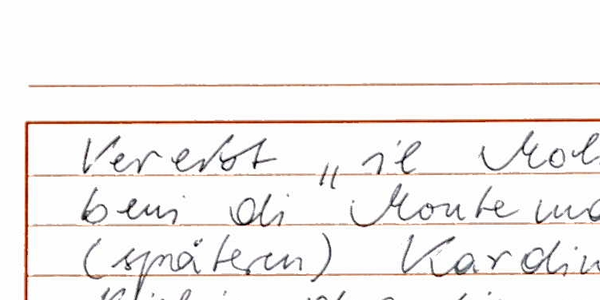 Vererbt „il Mol
beni di Monte und
(späteren) Kardin